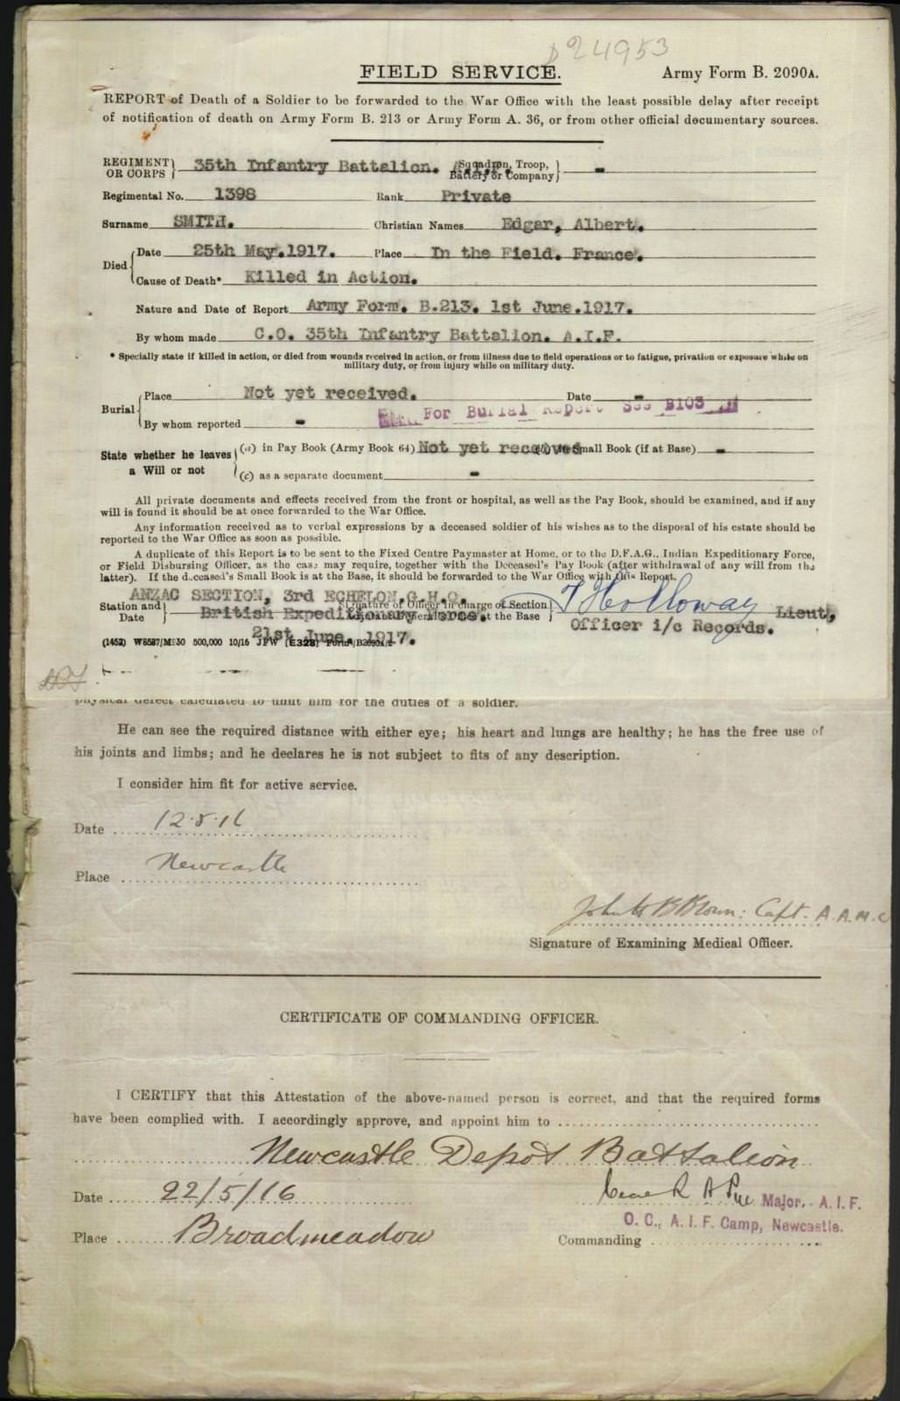 24953
FIELD SERVICE. Army Form B. 2090A.
REPORT of Death of a Soldier to be forwarded to the War Office with the least possible delay after receipt
of notification of death on Army Form B. 213 or Army Form A. 36, or from other official documentary sources.
REGIMENT OR CORPS } 35th Infantry Battalion. (Squadron, Troop, Battery or Company) -
Regimental No. 1398 Rank Private
Surname SMITH. Christian Names Edgar, Albert.
Died { Date 25th May.1917. Place In the Field. France.
Cause of Death* Killed in Action.
Nature and Date of Report Army Form. B.213. 1st June.1917.
By whom made C.O. 35th Infantry Battalion. A.I.F.
* Specially state if killed in action, or died from wounds received in action, or from illness due to field operations or to fatigue, privation or exposure while on
military duty, or from injury while on military duty.
Burial { Place Not yet received. Date -
For Burial Report See B103
By whom reported -
State whether he leaves a Will or not { (a) in Pay Book (Army Book 64) Not yet received Small Book (if at Base) -
(c) as a separate document -
All private documents and effects received from the front or hospital, as well as the Pay Book, should be examined, and if any
will is found it should be at once forwarded to the War Office.
Any information received as to verbal expressions by a deceased soldier of his wishes as to the disposal of his estate should be
reported to the War Office as soon as possible.
A duplicate of this Report is to be sent to the Fixed Centre Paymaster at Home, or to the D.F.A.G., Indian Expeditionary Force,
or Field Disbursing Officer, as the case may require, together with the Deceased's Pay Book (after withdrawal of any will from the
latter). If the deceased's Small Book is at the Base, it should be forwarded to the War Office with this Report.
ANZAC SECTION, 3rd ECHELON.G.H.Q.
Station and Date } British Expeditionary Force. Signature of Officer in charge of Section at the Base } T Holloway Lieut,
21st June. 1917. Officer i/c Records.
500,000 10/16
physical defect calculated to unfit him for the duties of a soldier.
He can see the required distance with either eye; his heart and lungs are healthy; he has the free use of
his joints and limbs; and he declares he is not subject to fits of any description.
I consider him fit for active service.
Date 12.5.16
Place Newcastle
Capt. A.A.M.C
Signature of Examining Medical Officer.
CERTIFICATE OF COMMANDING OFFICER.
I CERTIFY that this Attestation of the above-named person is correct, and that the required forms
have been complied with. I accordingly approve, and appoint him to
Newcastle Depot Battalion
Date 22/5/16 Major, A.I.F.
O. C., A. I. F. Camp, Newcastle.
Place Broadmeadow Commanding